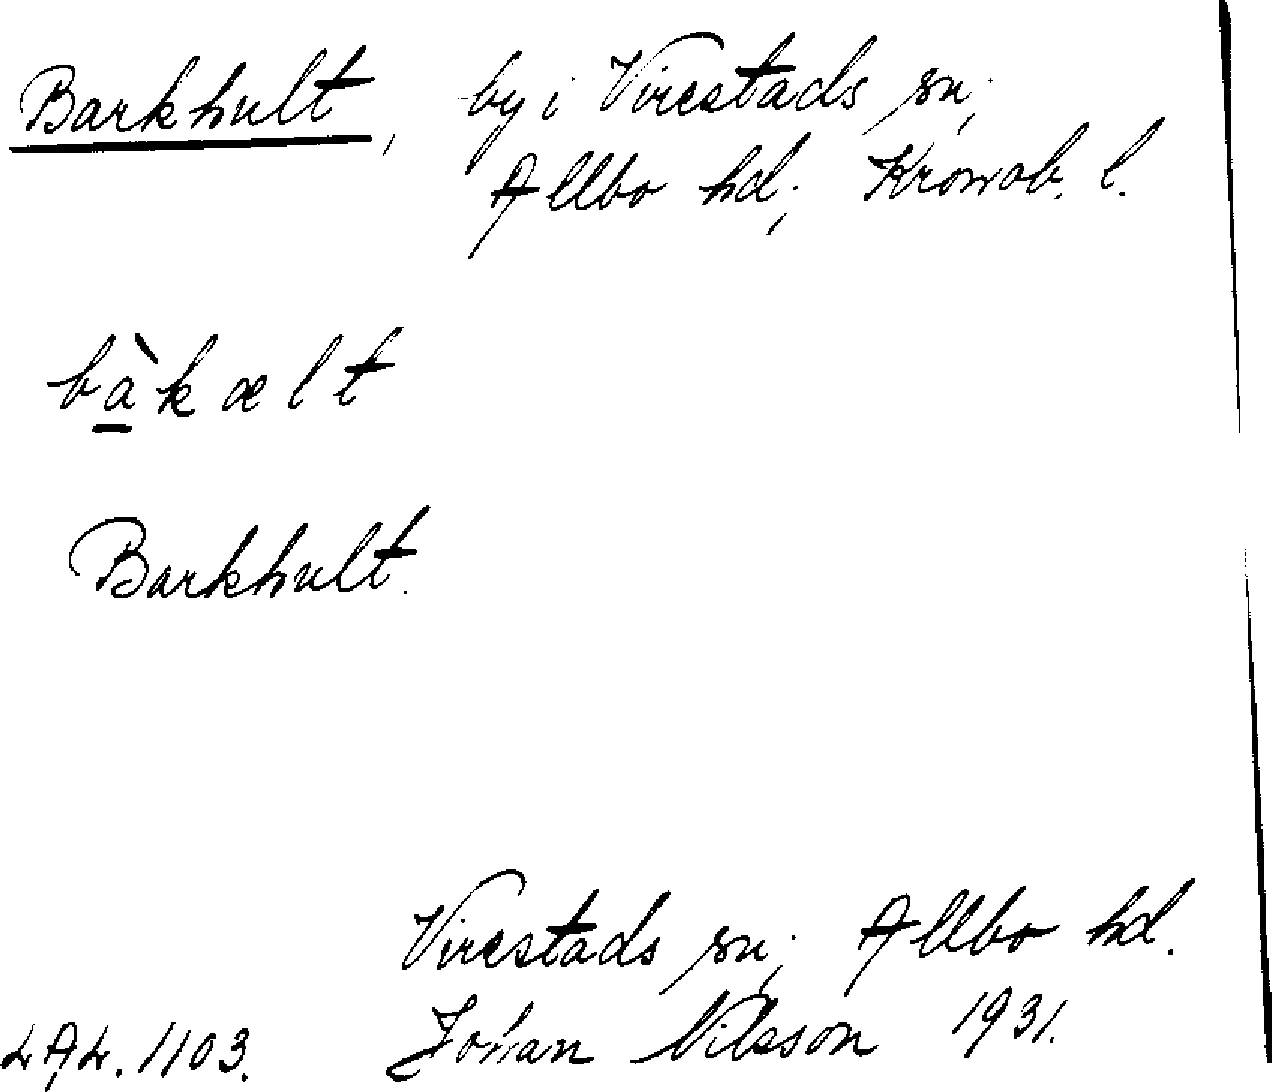 Barkhult, by i Virestads sn,
Allbo hd, Kronob. l.
bàkælt
Barkhult.
Virestads sn, Allbo hd.
LAL. 1103. Johan Nilsson 1931.